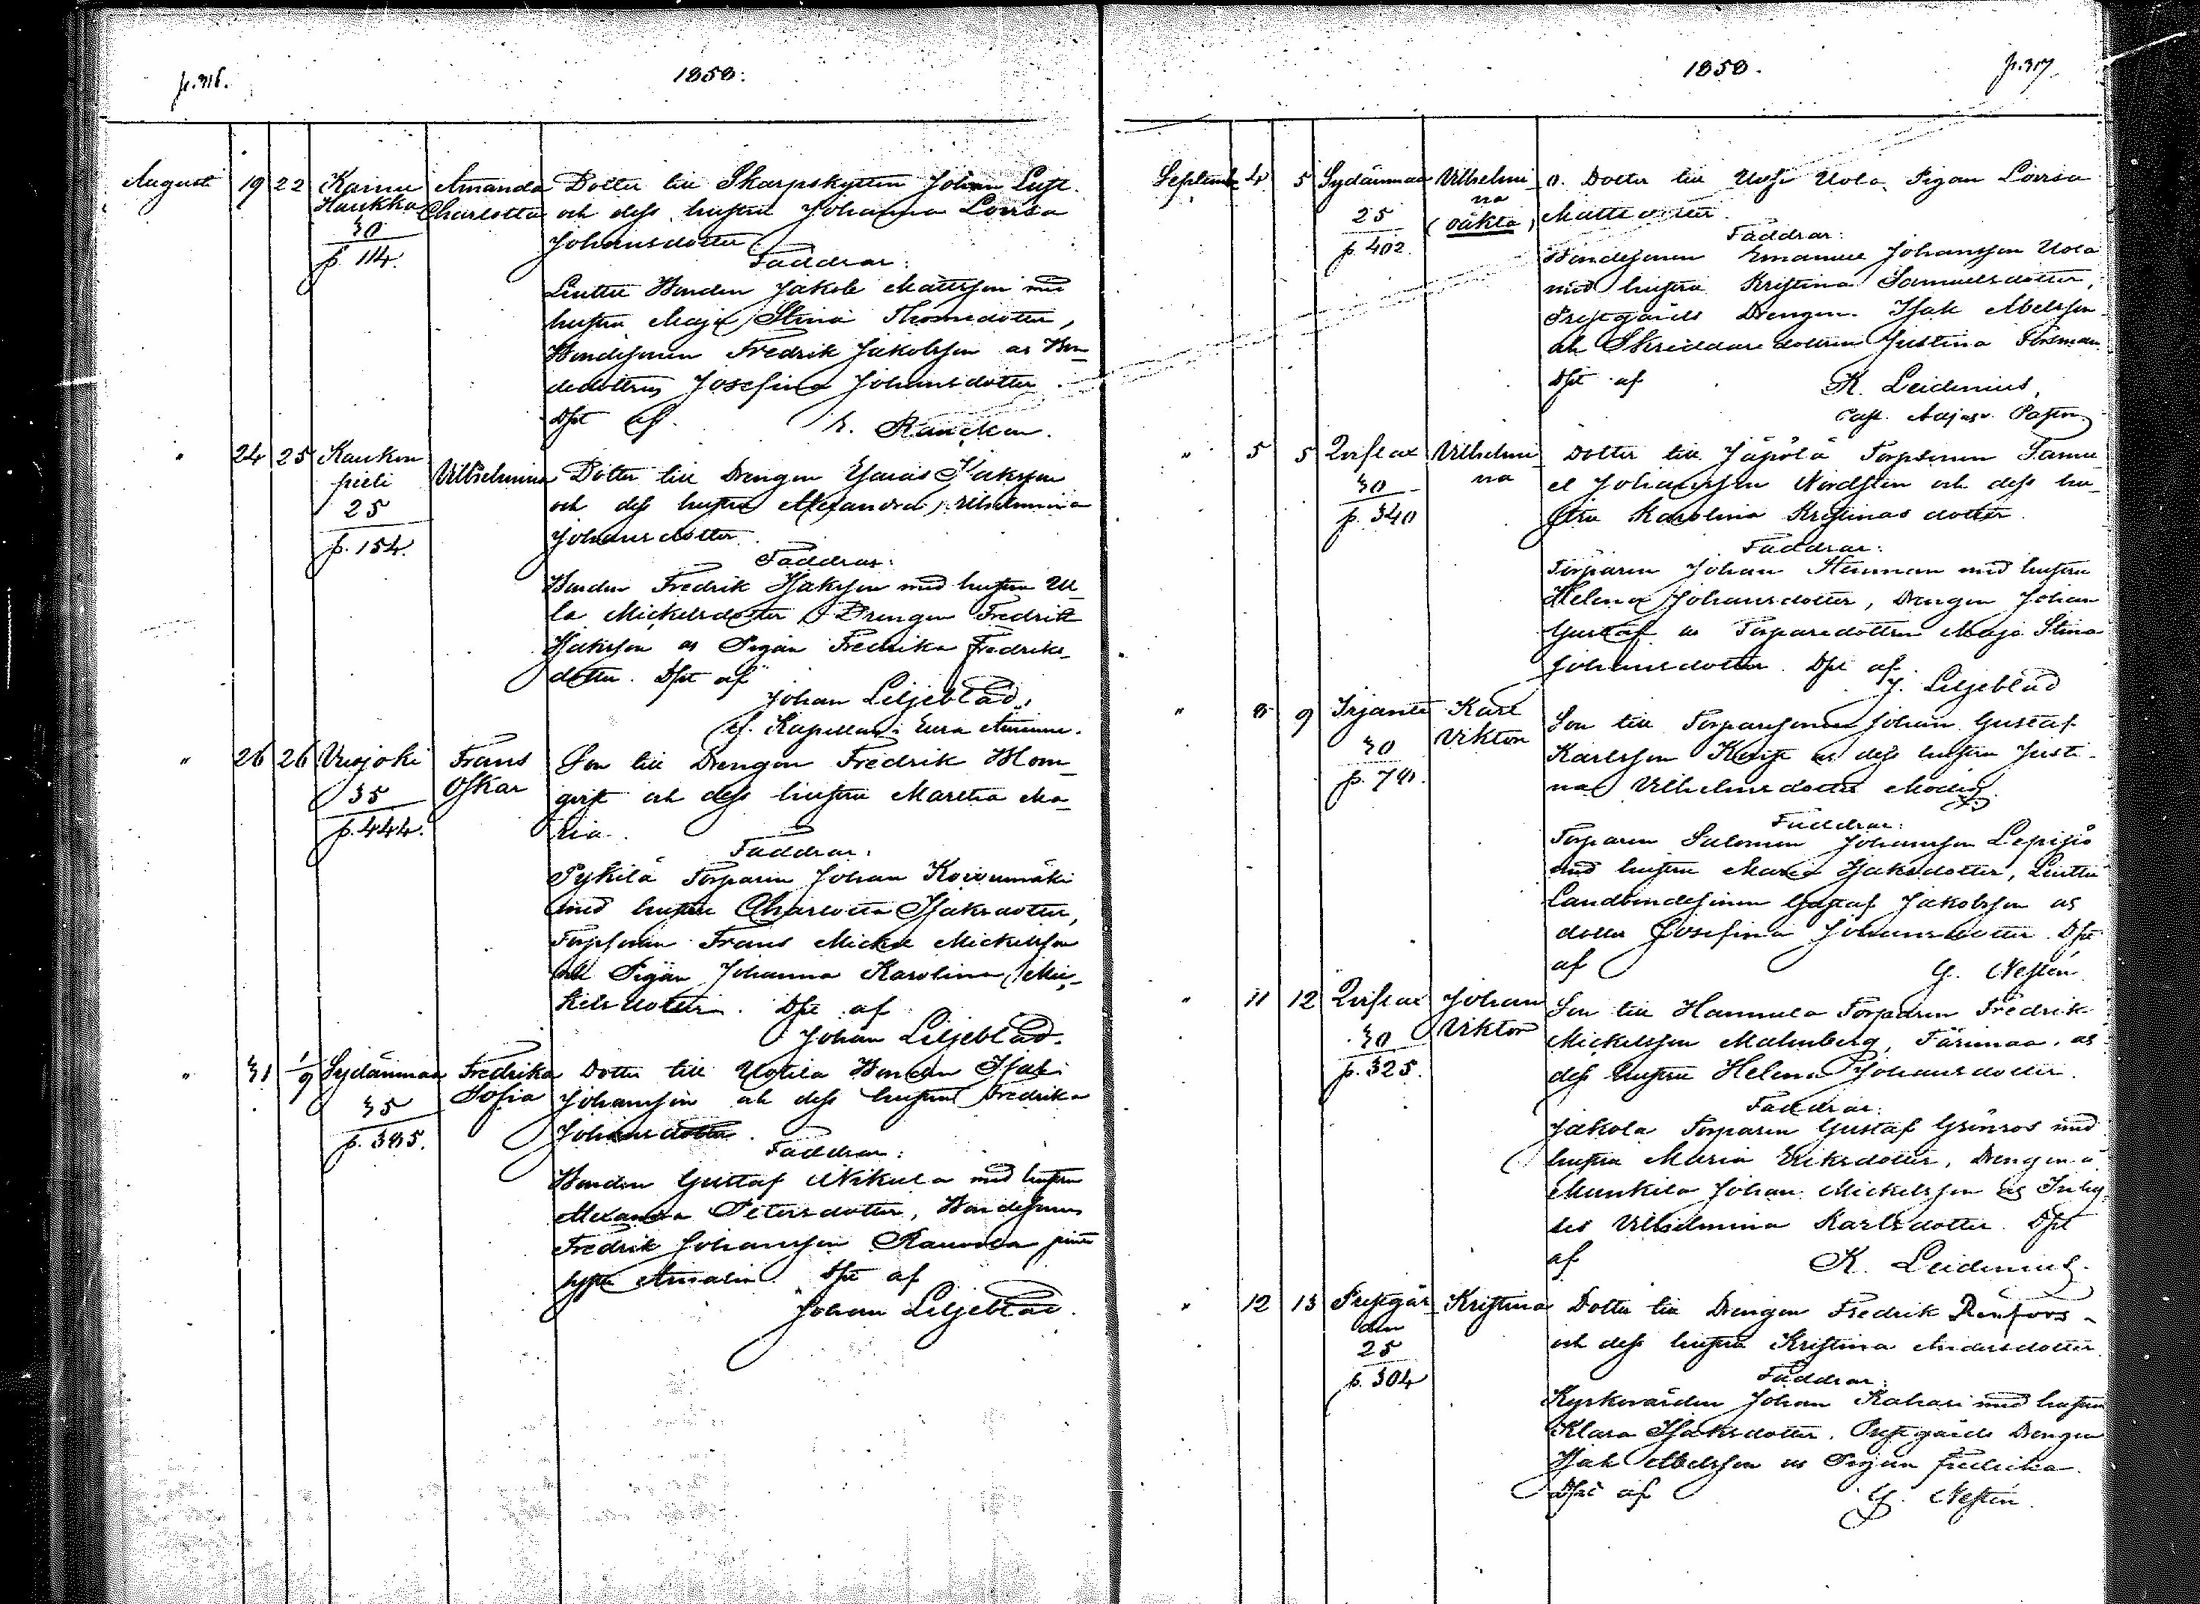 p. 316.
1858.
Augusti 19 22 Kainu Amanda Dotter till Skarpskytten Johan Luft
Haukka Charlotta och dess hustru Johanna Lovisa
30 Johansdotter
p. 114. Faddrar:
Linttu Bonden Jakob Mattsson med
hustru Maja Stina Thomedotter,
Bondesonen Fredrik Jakobsson as Bon
dedottren Josefina Johansdotter.
Dpt af E. Rancken.
" 24 25 Kauken
pieli Vilhelmina Dotter till Drengen Esaias Isaksson
25 och dess hustru Alexandra Vilhelmina
p. 154. Johansdotter.
Faddrar:
Bonden Fredrik Isaksson med hustru Ul
la Mickelsdotter, Drengen Fredrik
Isaksson as Pigan Fredrika Fredriks-
dotter. Dpt af
Johan Liljeblad,
Kapellan i Eura Aminne.
" 26 26 Vuojoki Frans Son till Drengen Fredrik Blom-
35 Oskar qvist och dess hustru Martha Ma-
p. 444. ria.
Faddrar:
Pykilä Torparen Johan Koivumäki
med hustru Charlotta Isaksdotter,
Torpsonen Frans Mickel Mickelsson
och Pigan Johanna Karolina Mic-
kelsdotter. Dpt af
Johan Liljeblad.
" 31 1/9 Sydänmaa Fredrika Dotter till Uotila Bonden Isak
35 Sofia Johansson och dess hustru Fredrika
p. 385. Johansdotter.
Faddrar:
Bonden Gustaf Nikula med hustru
Alexandra Petersdotter, Bondesonen
Fredrik Johansson
Amalia. Dpt af
Johan Liljeblad.
1858.
p. 317.
September 4 5 Sydänmaa Vilhelmi o. Dotter till Uola Pigan Lovisa
25 na Mattsdotter.
p. 402. (oäkta) Faddrar:
Bondesonen Emanuel Johansson Uola
med hustru Kristina Samuelsdotter,
Prestgårds Drengen Isak Abelsson
och Skräddare dottren Justina
Dpt af K. Leidenius,
Past.
" 5 5 Qvistar Vilhelmi Dotter till Jäpölä Torpsonen Samu
30 na el Johansson Nordsten och dess hu-
p. 340 stru Karolina Kristinas dotter.
Faddrar:
Torparen Johan Stenman med hustru
Helena Johansdotter, Drengen Johan
Gustaf as Torparedottren Maja Stina
Johansdotter. Dpt af
J. Liljeblad
" 8 9 Irjante Karl Son till Torparesonen Johan Gustaf
30 Viktor Karlsson as dess hustru Justi-
p. 78. na Vilhelmsdotter Modig.
Faddrar:
Torparen Salomon Johansson
med hustru Maria Isaksdotter, Linttu
Landbondesonen Gustaf Jakobsson as
dotter Josefina Johansdotter. Dpt
af G. Nestén
" 11 12 Johan Son till Hannula Torparen Fredrik
30 Viktor Mickelsson Malmberg as
p. 325. dess hustru Helena Johansdotter.
Faddrar:
Jakola Torparen Gustaf Grönros med
hustru Maria Eriksdotter, Drengen å
Munkila Johan Mickelsson as Inhy-
ses Vilhelmina Karlsdotter. Dpt
af K. Leidenius.
" 12 13 Prestgår Kristina Dotter till Drengen Fredrik Renfors
den och dess hustru Kristina Andersdotter.
25
p. 304 Faddrar:
Kyrkovärden Johan Kahari med hustru
Klara Isaksdotter, Prestgårds Drengen
Isak Abelsson as Pigan Fredrika.
Dpt af G. Nestén.